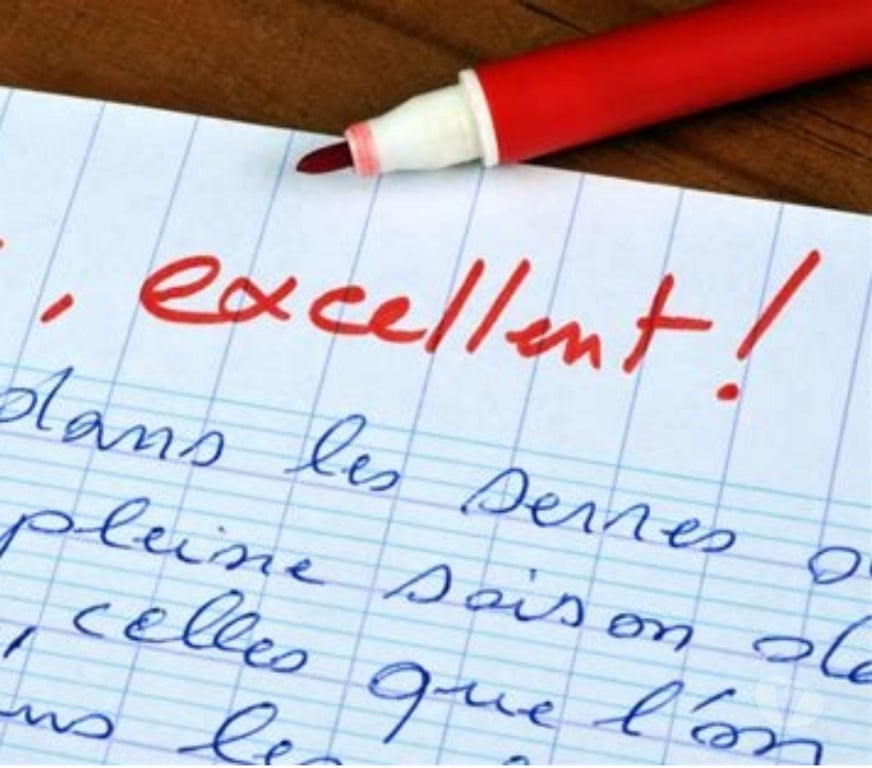 , excellent !
dans les serres
pleine saison
, celles que l'on
les